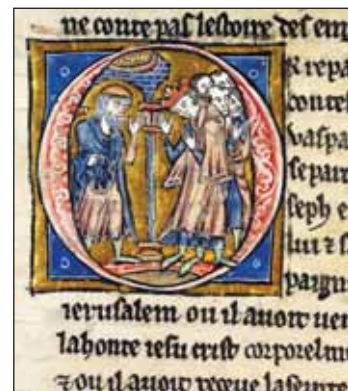 ne conte pas lestoire des em
R repa
contes
vaspa
separt
seph e
lui ⁊ s
pargn
ierusalem ou il auoit uen
lahonte iesu crist corporelm
⁊ ou il auoit receue laseinte